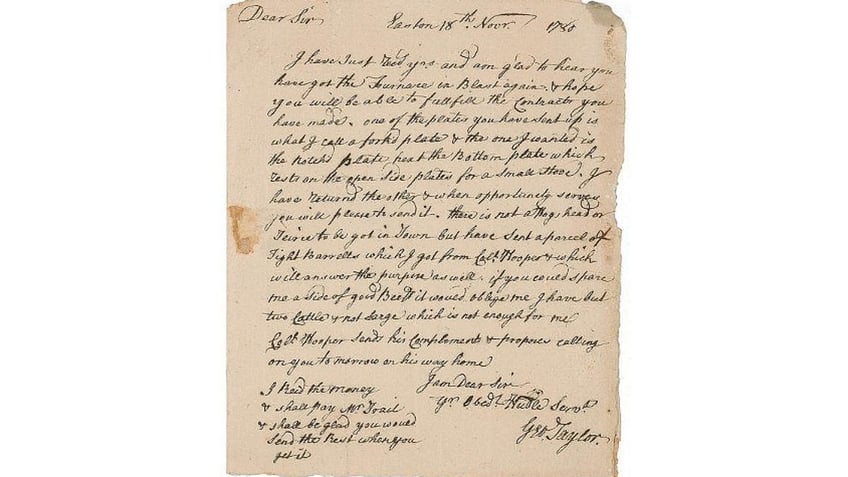 Dear Sir Easton 18th Novr. 1780
I have Just Recd yrs and am glad to hear you
have got the Furnace in Blast again & hope
you will be able to fullfill the Contracts you
have made. one of the plates you have sent up is
what I call a forkd plate & the one I wanted is
the notchd plate next the Bottom plate which
rests on the open Side plates for a Small Stove. I
have returnd the other & when opportunity serves
you will please to send it. there is not a Hogshead or
Teirce to be got in Town but have sent a parcel of
Tight Barrells which I got from Coll. Hooper & which
will answer the purpose as well. if you could spare
me a Side of good Beef it would oblige me I have but
two Cattle & not Large which is not enough for me
Coll. Hooper Sends his Complements & proposes calling
on you to morrow on his way home
I am Dear Sir
Yr. Obedt. Huble Servt.
Geo. Taylor.
I Recd the money
& shall pay Mr. Trail
& shall be glad you would
Send the Rest when you
get it